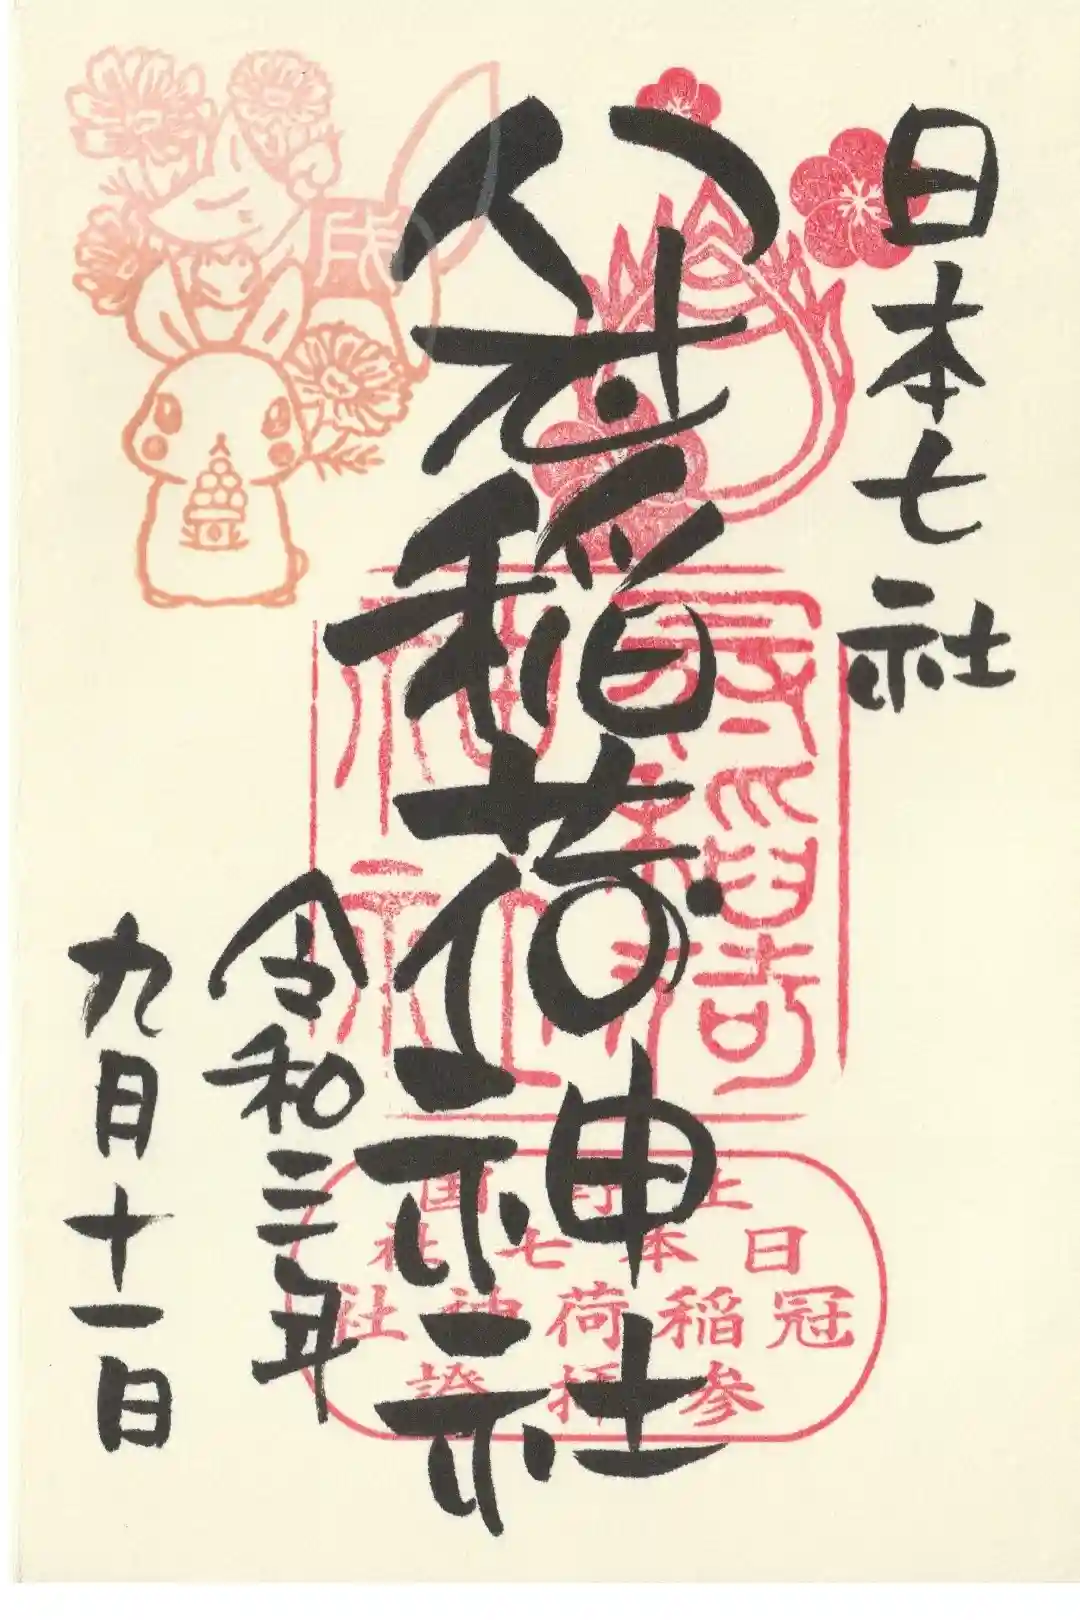 日本七社
冠稲荷神社
令和三年
九月十一日
上野国
日本七社
冠稲荷神社
参拝證